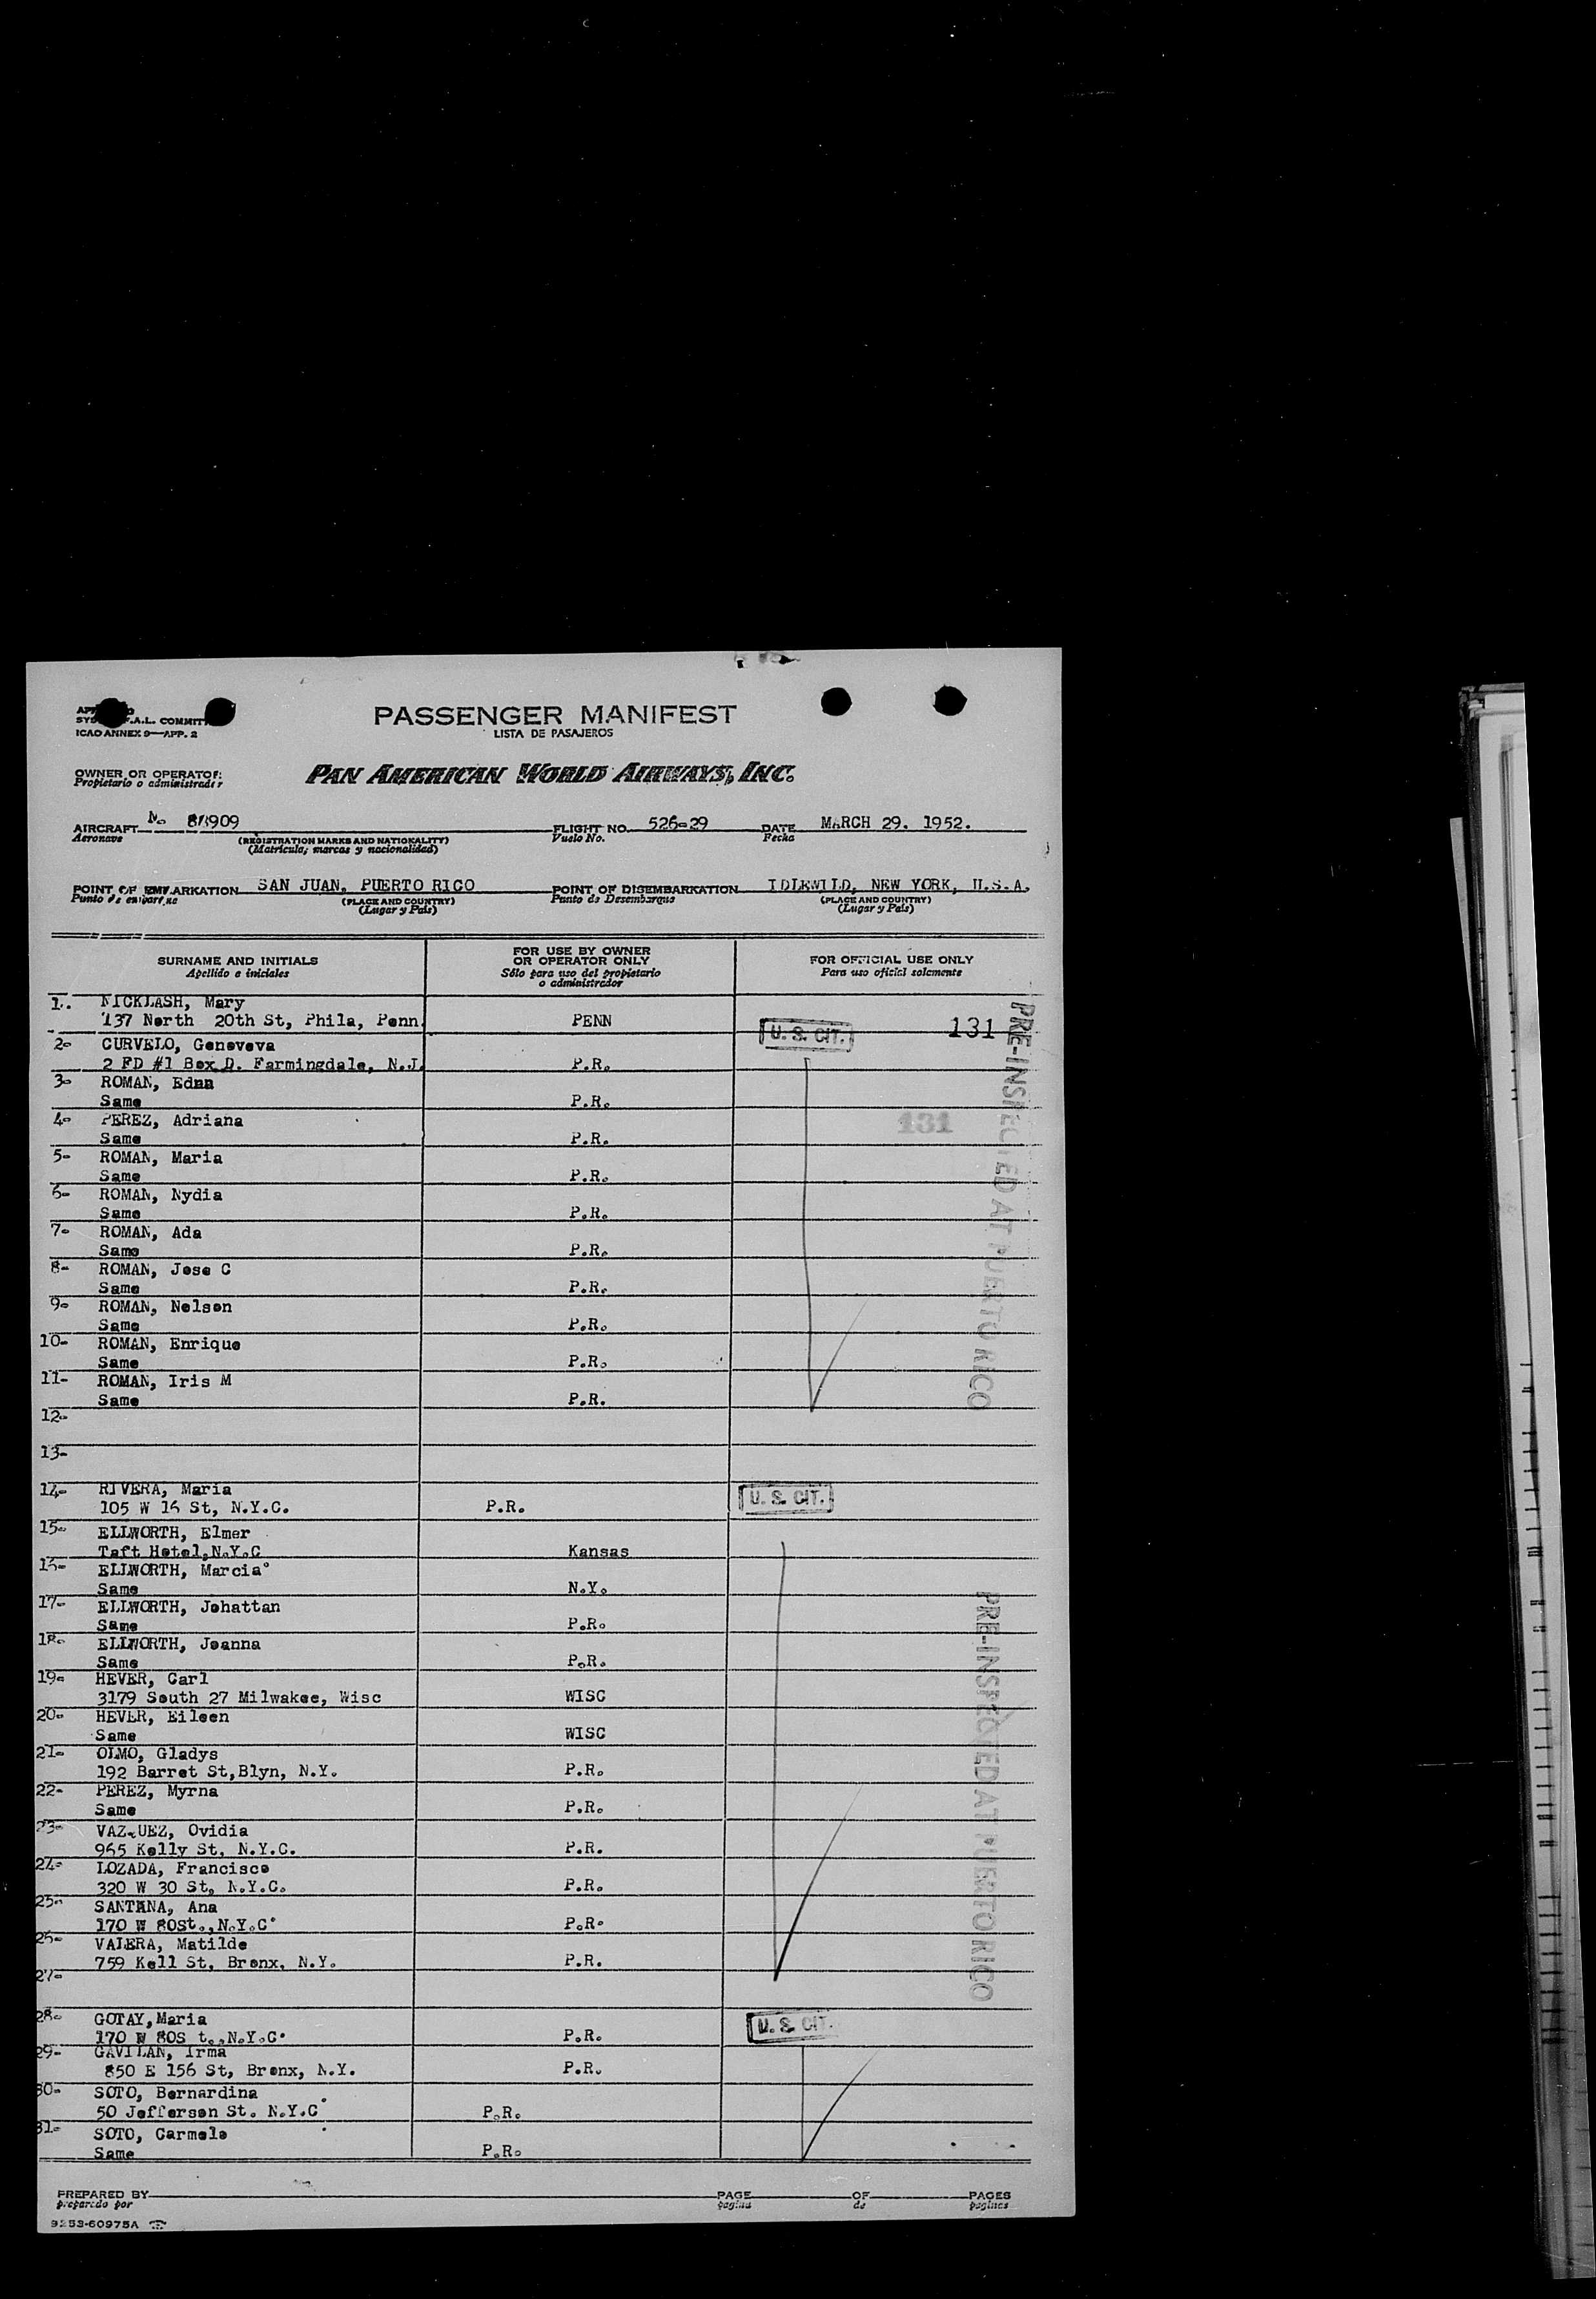 F.A.L. COMMIT
ICAO ANNEX 9—APP. 2
PASSENGER MANIFEST
LISTA DE PASAJEROS
OWNER OR OPERATOR:
Propietario o administrador
PAN AMERICAN WORLD AIRWAYS, INC.
AIRCRAFT
Aeronave
(REGISTRATION MARKS AND NATIONALITY)
(Matrícula, marcas y nacionalidad)
FLIGHT NO. 526-29
Vuelo No.
DATE MARCH 29. 1952.
Fecha
POINT OF EMBARKATION SAN JUAN, PUERTO RICO
Punto de embarque
(PLACE AND COUNTRY)
(Lugar y País)
POINT OF DISEMBARKATION IDLEWILD, NEW YORK, U.S.A.
Punto de Desembarque
(PLACE AND COUNTRY)
(Lugar y País)
SURNAME AND INITIALS
Apellido e iniciales
FOR USE BY OWNER
OR OPERATOR ONLY
Sólo para uso del propietario
o administrador
FOR OFFICIAL USE ONLY
Para uso oficial solamente
1. NICKLASH, Mary
137 North 20th St, Phila, Penn. PENN
U. S. CIT. 131
2- CURVELO, Genoveva
2 FD #1 Box D. Farmingdale, N.J. P.R.
3- ROMAN, Edna
Same P.R.
4- PEREZ, Adriana 131
Same P.R.
5- ROMAN, Maria
Same P.R.
6- ROMAN, Nydia
Same P.R.
7- ROMAN, Ada
Same P.R.
8- ROMAN, Jose C
Same P.R.
9- ROMAN, Nelson
Same P.R.
10- ROMAN, Enrique
Same P.R.
11- ROMAN, Iris M
Same P.R.
12-
13-
PRE-INSPECTED AT PUERTO RICO
14- RIVERA, Maria
105 W 16 St, N.Y.C. P.R. U. S. CIT.
15- ELLWORTH, Elmer
Taft Hotel, N.Y.C Kansas
16- ELLWORTH, Marcia
Same N.Y.
17- ELLWORTH, Johattan
Same P.R.
18- ELLWORTH, Joanna
Same P.R.
19- HEVER, Carl
3179 South 27 Milwakee, Wisc WISC
20- HEVER, Eileen
Same WISC
21- OLMO, Gladys
192 Barret St, Blyn, N.Y. P.R.
22- PEREZ, Myrna
Same P.R.
23- VAZQUEZ, Ovidia
965 Kelly St, N.Y.C. P.R.
24- LOZADA, Francisco
320 W 30 St, N.Y.C. P.R.
25- SANTANA, Ana
170 W 80St., N.Y.C P.R.
26- VALERA, Matilde
759 Kell St, Bronx, N.Y. P.R.
27-
PRE-INSPECTED AT PUERTO RICO
28- GOTAY, Maria
170 W 80S t., N.Y.C. P.R. U. S. CIT.
29- GAVILAN, Irma
850 E 156 St, Bronx, N.Y. P.R.
30- SOTO, Bernardina
50 Jefferson St. N.Y.C P.R.
31- SOTO, Carmelo
Same P.R.
PREPARED BY PAGE OF PAGES
preparado por pagina de paginas
9253-60975A